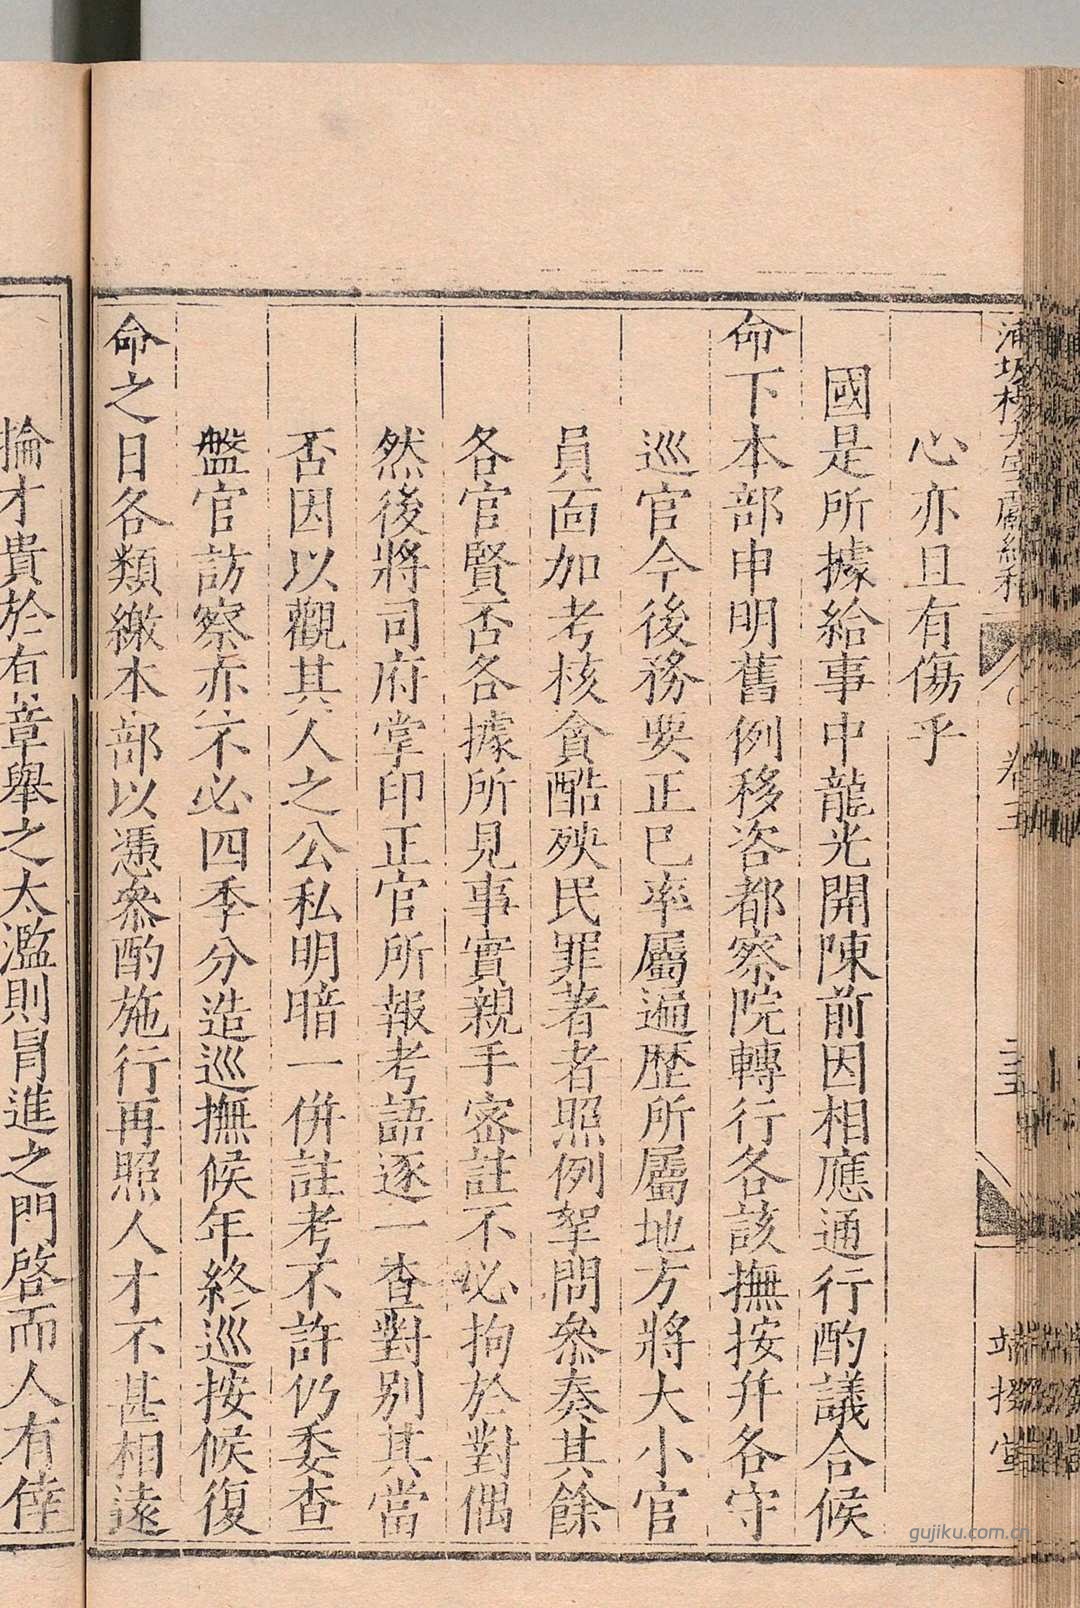 心亦且有傷乎
國是所據給事中龍光開陳前因相應通行酌議合候
命下本部申明舊例移咨都察院轉行各該撫按幷各守
巡官今後務要正己率屬遍歷所屬地方將大小官
員面加考核貪酷殃民罪著者照例拏問叅奏其餘
各官賢否各據所見事實親手密註不必拘於對偶
然後將司府掌印正官所報考語逐一查對別其當
否因以觀其人之公私明暗一併註考不許仍委查
盤官訪察亦不必四季分造巡撫候年終巡按候復
命之日各類繳本部以憑叅酌施行再照人才不甚相遠
掄才貴於有章舉之太濫則冐進之門啓而人有倖
gujiku.com.cn